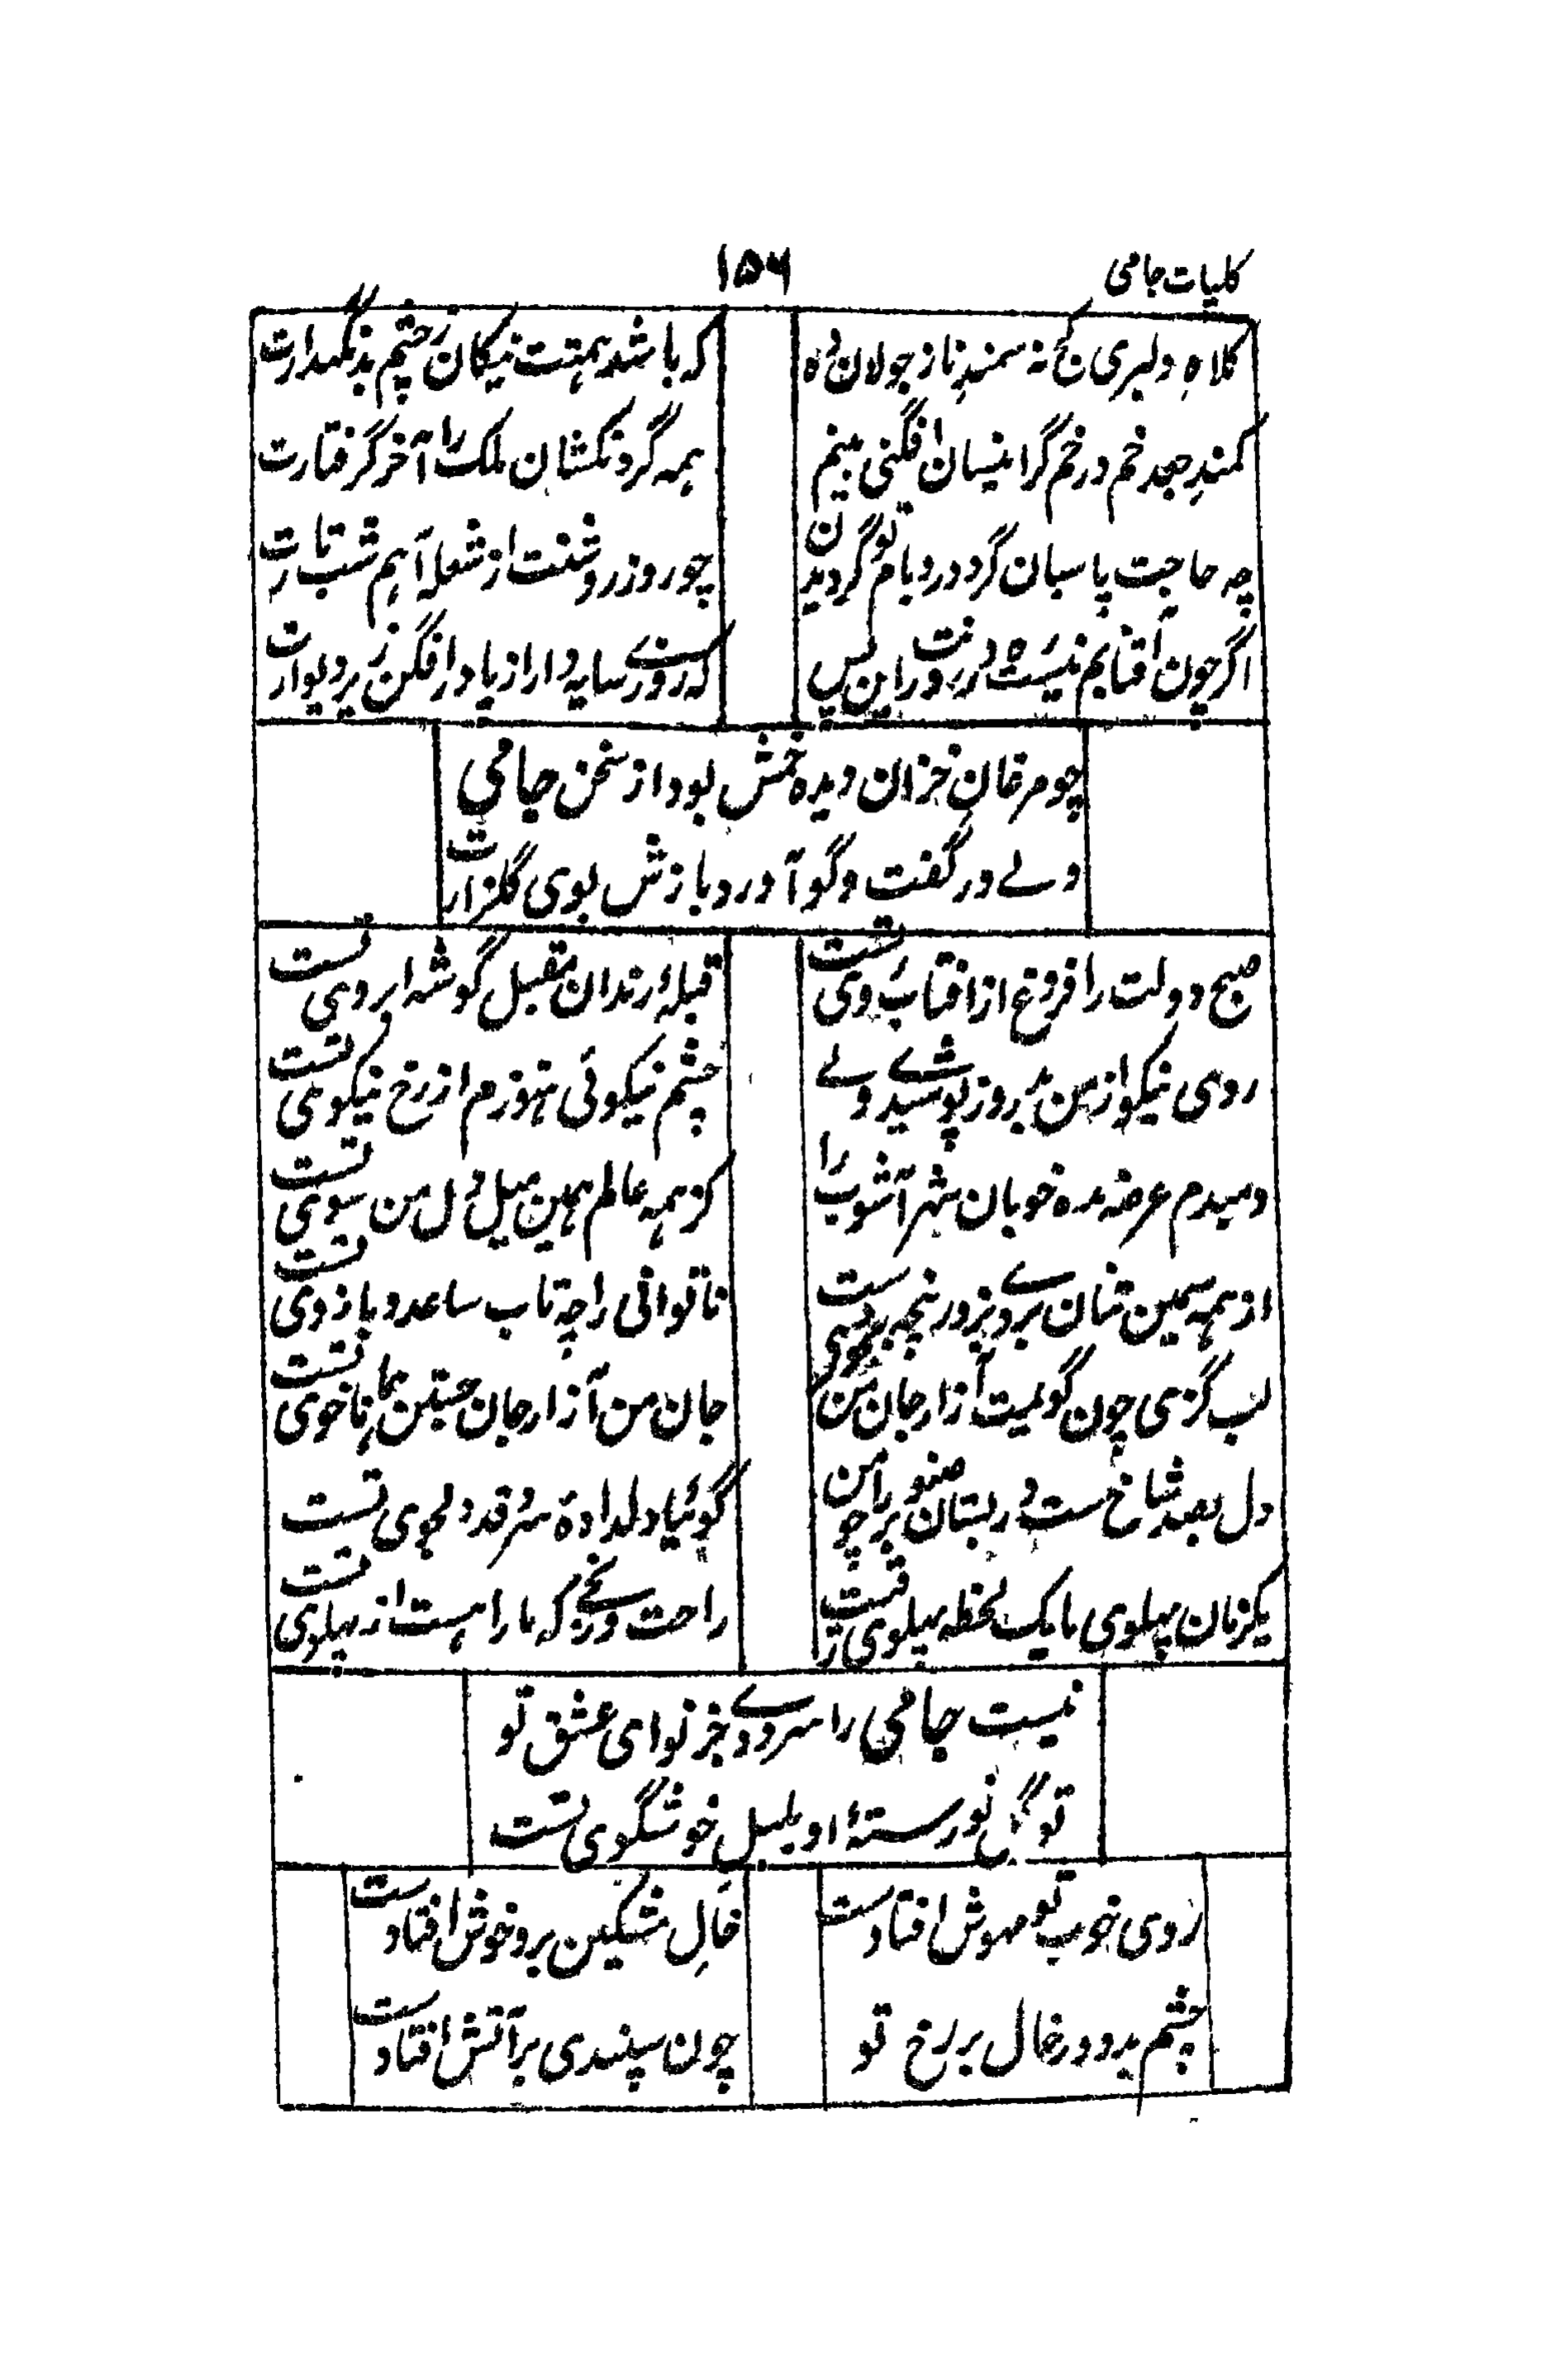 کلیات جامی
۱۵۶
کلاهِ دلبری کج نه سمندِ ناز جولان ده
که باشد همت نیکان ز چشم بد نگهدارت
کمندِ جعد خم در خم گر اینسان افگنی بینم
همه گردنکشان ملک را آخر گرفتارت
چه حاجت پاسبان گرد در و بام تو گردیدن
چو روز روشنت از شعلهٔ آهم شب تارت
اگر چون آفتابم نیست ره در درونت زین پس
که روزے سایه وار از پا در افگن ز بر دیوارت
چو مرغانِ خزان دیده خمش بود از سخن جامی
ولے در گفت وگو آورد بازش بوی گلزارت
صبح دولت را فروغ از آفتاب روی تست
قبلهٔ رندان مقبل گوشه ابروی تست
روی نیکو از من بد روز پوشیدے ولے
چشم نیکوئی هنوزم از رخ نیکوی تست
دمبدم عرضه مده خوبان شهر آشوب را
کز همه عالم همین میل دل من سوی تست
از همه سیمین تنان بردے بزور پنجه دست
ناتوانی را چه تاب ساعد و بازوی تست
لب گزی چون گویمت آزار جان من مجوی
جان من آزار جان جستن همانا خوی تست
دل بصد شاخ ست در بستان صنوبر را چو من
گوئیا دلدادهٔ سرو قد دلجوی تست
یکزمان پهلوی ما یک لحظه پهلوی رقیب
راحت و رنجے که ما را هست از پهلوی تست
نیست جامی را سرودے جز نوای عشق تو
تو گل نورستهٔ او بلبل خوشگوی تست
روی خوب تو مهوش افتادست
خالِ مشکین برو خوش افتادست
چشم بد دور خال بر رخ تو
چون سپندی بر آتش افتادست